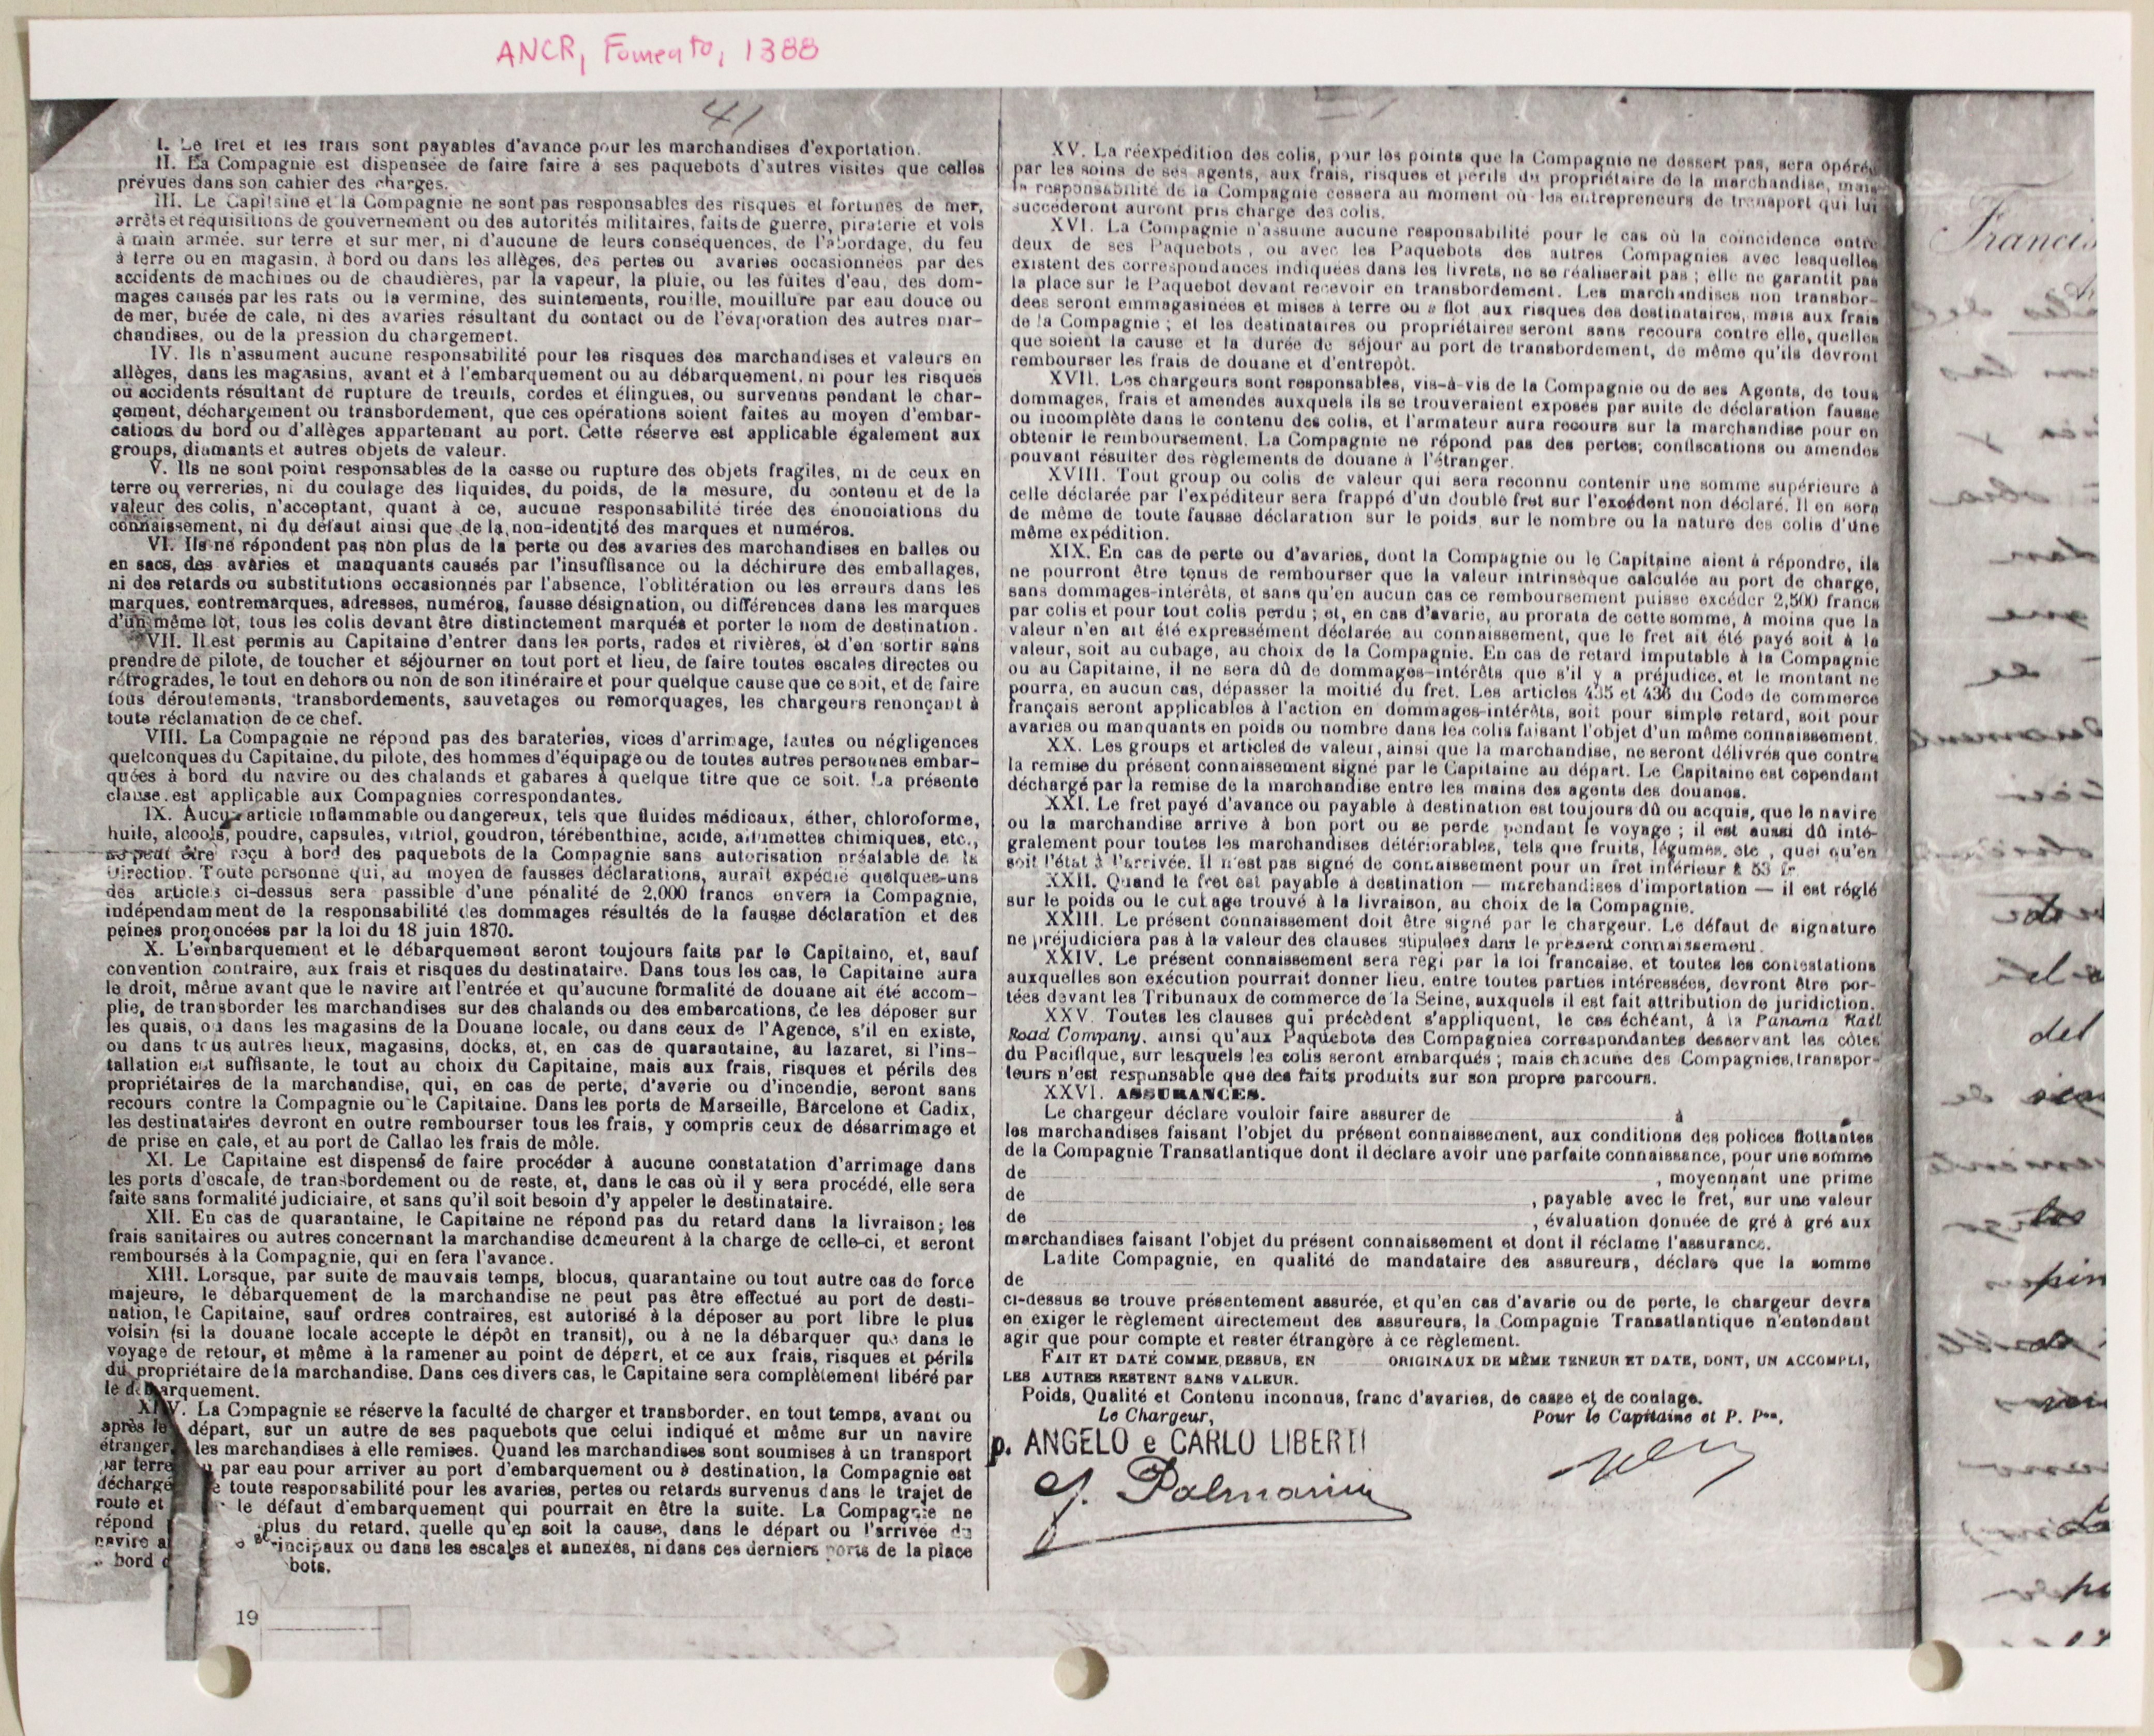 ANCR, Fomento, 1388
41
I. Le fret et les frais sont payables d'avance pour les marchandises d'exportation.
II. La Compagnie est dispensée de faire faire à ses paquebots d'autres visites que celles
prévues dans son cahier des charges.
III. Le Capitaine et la Compagnie ne sont pas responsables des risques et fortunes de mer,
arrêts et réquisitions de gouvernement ou des autorités militaires, faits de guerre, piraterie et vols
à main armée, sur terre et sur mer, ni d'aucune de leurs conséquences, de l'abordage, du feu
à terre ou en magasin, à bord ou dans les allèges, des pertes ou avaries occasionnées par des
accidents de machines ou de chaudières, par la vapeur, la pluie, ou les fuites d'eau, des dom-
mages causés par les rats ou la vermine, des suintements, rouille, mouillure par eau douce ou
de mer, buée de cale, ni des avaries résultant du contact ou de l'évaporation des autres mar-
chandises, ou de la pression du chargement.
IV. Ils n'assument aucune responsabilité pour les risques des marchandises et valeurs en
allèges, dans les magasins, avant et à l'embarquement ou au débarquement, ni pour les risques
ou accidents résultant de rupture de treuils, cordes et élingues, ou survenus pendant le char-
gement, déchargement ou transbordement, que ces opérations soient faites au moyen d'embar-
cations du bord ou d'allèges appartenant au port. Cette réserve est applicable également aux
groups, diamants et autres objets de valeur.
V. Ils ne sont point responsables de la casse ou rupture des objets fragiles, ni de ceux en
terre ou verreries, ni du coulage des liquides, du poids, de la mesure, du contenu et de la
valeur des colis, n'acceptant, quant à ce, aucune responsabilité tirée des énonciations du
connaissement, ni du défaut ainsi que de la non-identité des marques et numéros.
VI. Ils ne répondent pas non plus de la perte ou des avaries des marchandises en balles ou
en sacs, des avaries et manquants causés par l'insuffisance ou la déchirure des emballages,
ni des retards ou substitutions occasionnés par l'absence, l'oblitération ou les erreurs dans les
marques, contremarques, adresses, numéros, fausse désignation, ou différences dans les marques
d'un même lot, tous les colis devant être distinctement marqués et porter le nom de destination.
VII. Il est permis au Capitaine d'entrer dans les ports, rades et rivières, et d'en sortir sans
prendre de pilote, de toucher et séjourner en tout port et lieu, de faire toutes escales directes ou
rétrogrades, le tout en dehors ou non de son itinéraire et pour quelque cause que ce soit, et de faire
tous déroutements, transbordements, sauvetages ou remorquages, les chargeurs renonçant à
toute réclamation de ce chef.
VIII. La Compagnie ne répond pas des barateries, vices d'arrimage, fautes ou négligences
quelconques du Capitaine, du pilote, des hommes d'équipage ou de toutes autres personnes embar-
quées à bord du navire ou des chalands et gabares à quelque titre que ce soit. La présente
clause est applicable aux Compagnies correspondantes.
IX. Aucun article inflammable ou dangereux, tels que fluides médicaux, éther, chloroforme,
huile, alcools, poudre, capsules, vitriol, goudron, térébenthine, acide, allumettes chimiques, etc.,
ne peut être reçu à bord des paquebots de la Compagnie sans autorisation préalable de la
Direction. Toute personne qui, au moyen de fausses déclarations, aurait expédié quelques-uns
des articles ci-dessus sera passible d'une pénalité de 2,000 francs envers la Compagnie,
indépendamment de la responsabilité des dommages résultés de la fausse déclaration et des
peines prononcées par la loi du 18 juin 1870.
X. L'embarquement et le débarquement seront toujours faits par le Capitaine, et, sauf
convention contraire, aux frais et risques du destinataire. Dans tous les cas, le Capitaine aura
le droit, même avant que le navire ait l'entrée et qu'aucune formalité de douane ait été accom-
plie, de transborder les marchandises sur des chalands ou des embarcations, de les déposer sur
les quais, ou dans les magasins de la Douane locale, ou dans ceux de l'Agence, s'il en existe,
ou dans tous autres lieux, magasins, docks, et, en cas de quarantaine, au lazaret, si l'ins-
tallation est suffisante, le tout au choix du Capitaine, mais aux frais, risques et périls des
propriétaires de la marchandise, qui, en cas de perte, d'avarie ou d'incendie, seront sans
recours contre la Compagnie ou le Capitaine. Dans les ports de Marseille, Barcelone et Cadix,
les destinataires devront en outre rembourser tous les frais, y compris ceux de désarrimage et
de prise en cale, et au port de Callao les frais de môle.
XI. Le Capitaine est dispensé de faire procéder à aucune constatation d'arrimage dans
les ports d'escale, de transbordement ou de reste, et, dans le cas où il y sera procédé, elle sera
faite sans formalité judiciaire, et sans qu'il soit besoin d'y appeler le destinataire.
XII. En cas de quarantaine, le Capitaine ne répond pas du retard dans la livraison; les
frais sanitaires ou autres concernant la marchandise demeurent à la charge de celle-ci, et seront
remboursés à la Compagnie, qui en fera l'avance.
XIII. Lorsque, par suite de mauvais temps, blocus, quarantaine ou tout autre cas de force
majeure, le débarquement de la marchandise ne peut pas être effectué au port de desti-
nation, le Capitaine, sauf ordres contraires, est autorisé à la déposer au port libre le plus
voisin (si la douane locale accepte le dépôt en transit), ou à ne la débarquer que dans le
voyage de retour, et même à la ramener au point de départ, et ce aux frais, risques et périls
du propriétaire de la marchandise. Dans ces divers cas, le Capitaine sera complètement libéré par
le débarquement.
XIV. La Compagnie se réserve la faculté de charger et transborder, en tout temps, avant ou
après le départ, sur un autre de ses paquebots que celui indiqué et même sur un navire
étranger, les marchandises à elle remises. Quand les marchandises sont soumises à un transport
par terre par eau pour arriver au port d'embarquement ou à destination, la Compagnie est
décharge toute responsabilité pour les avaries, pertes ou retards survenus dans le trajet de
route et le défaut d'embarquement qui pourrait en être la suite. La Compagnie ne
répond plus du retard, quelle qu'en soit la cause, dans le départ ou l'arrivée du
navire principaux ou dans les escales et annexes, ni dans ces derniers ports de la place
bord bots.
19
XV. La réexpédition des colis, pour les points que la Compagnie ne dessert pas, sera opérée
par les soins de ses agents, aux frais, risques et périls du propriétaire de la marchandise, mais
la responsabilité de la Compagnie cessera au moment où les entrepreneurs de transport qui lui
succéderont auront pris charge des colis.
XVI. La Compagnie n'assume aucune responsabilité pour le cas où la coïncidence entre
deux de ses Paquebots, ou avec les Paquebots des autres Compagnies avec lesquelles
existent des correspondances indiquées dans les livrets, ne se réaliserait pas; elle ne garantit pas
la place sur le Paquebot devant recevoir en transbordement. Les marchandises non transbor-
dées seront emmagasinées et mises à terre ou à flot aux risques des destinataires, mais aux frais
de la Compagnie; et les destinataires ou propriétaires seront sans recours contre elle, quelles
que soient la cause et la durée de séjour au port de transbordement, de même qu'ils devront
rembourser les frais de douane et d'entrepôt.
XVII. Les chargeurs sont responsables, vis-à-vis de la Compagnie ou de ses Agents, de tous
dommages, frais et amendes auxquels ils se trouveraient exposés par suite de déclaration fausse
ou incomplète dans le contenu des colis, et l'armateur aura recours sur la marchandise pour en
obtenir le remboursement. La Compagnie ne répond pas des pertes, confiscations ou amendes
pouvant résulter des règlements de douane à l'étranger.
XVIII. Tout group ou colis de valeur qui sera reconnu contenir une somme supérieure à
celle déclarée par l'expéditeur sera frappé d'un double fret sur l'excédent non déclaré. Il en sera
de même de toute fausse déclaration sur le poids, sur le nombre ou la nature des colis d'une
même expédition.
XIX. En cas de perte ou d'avaries, dont la Compagnie ou le Capitaine aient à répondre, ils
ne pourront être tenus de rembourser que la valeur intrinsèque calculée au port de charge,
sans dommages-intérêts, et sans qu'en aucun cas ce remboursement puisse excéder 2,500 francs
par colis et pour tout colis perdu; et, en cas d'avarie, au prorata de cette somme, à moins que la
valeur n'en ait été expressément déclarée au connaissement, que le fret ait été payé soit à la
valeur, soit au cubage, au choix de la Compagnie. En cas de retard imputable à la Compagnie
ou au Capitaine, il ne sera dû de dommages-intérêts que s'il y a préjudice, et le montant ne
pourra, en aucun cas, dépasser la moitié du fret. Les articles 435 et 436 du Code de commerce
français seront applicables à l'action en dommages-intérêts, soit pour simple retard, soit pour
avaries ou manquants en poids ou nombre dans les colis faisant l'objet d'un même connaissement.
XX. Les groups et articles de valeur, ainsi que la marchandise, ne seront délivrés que contre
la remise du présent connaissement signé par le Capitaine au départ. Le Capitaine est cependant
déchargé par la remise de la marchandise entre les mains des agents des douanes.
XXI. Le fret payé d'avance ou payable à destination est toujours dû ou acquis, que le navire
ou la marchandise arrive à bon port ou se perde pendant le voyage; il est aussi dû inté-
gralement pour toutes les marchandises détériorables, tels que fruits, légumes, etc., quel qu'en
soit l'état à l'arrivée. Il n'est pas signé de connaissement pour un fret inférieur à 53 fr.
XXII. Quand le fret est payable à destination — marchandises d'importation — il est réglé
sur le poids ou le cubage trouvé à la livraison, au choix de la Compagnie.
XXIII. Le présent connaissement doit être signé par le chargeur. Le défaut de signature
ne préjudiciera pas à la valeur des clauses stipulées dans le présent connaissement.
XXIV. Le présent connaissement sera régi par la loi française, et toutes les contestations
auxquelles son exécution pourrait donner lieu, entre toutes parties intéressées, devront être por-
tées devant les Tribunaux de commerce de la Seine, auxquels il est fait attribution de juridiction.
XXV. Toutes les clauses qui précèdent s'appliquent, le cas échéant, à la Panama Rail
Road Company, ainsi qu'aux Paquebots des Compagnies correspondantes desservant les côtes
du Pacifique, sur lesquels les colis seront embarqués; mais chacune des Compagnies transpor-
teurs n'est responsable que des faits produits sur son propre parcours.
XXVI. ASSURANCES.
Le chargeur déclare vouloir faire assurer de à
les marchandises faisant l'objet du présent connaissement, aux conditions des polices flottantes
de la Compagnie Transatlantique dont il déclare avoir une parfaite connaissance, pour une somme
de , moyennant une prime
de , payable avec le fret, sur une valeur
de , évaluation donnée de gré à gré aux
marchandises faisant l'objet du présent connaissement et dont il réclame l'assurance.
Ladite Compagnie, en qualité de mandataire des assureurs, déclare que la somme
de
ci-dessus se trouve présentement assurée, et qu'en cas d'avarie ou de perte, le chargeur devra
en exiger le règlement directement des assureurs, la Compagnie Transatlantique n'entendant
agir que pour compte et rester étrangère à ce règlement.
FAIT ET DATÉ COMME DESSUS, EN ORIGINAUX DE MÊME TENEUR ET DATE, DONT, UN ACCOMPLI,
LES AUTRES RESTENT SANS VALEUR.
Poids, Qualité et Contenu inconnus, franc d'avaries, de casse et de coulage.
Le Chargeur, Pour le Capitaine et P. Pon,
p. ANGELO e CARLO LIBERTI
Francis
del